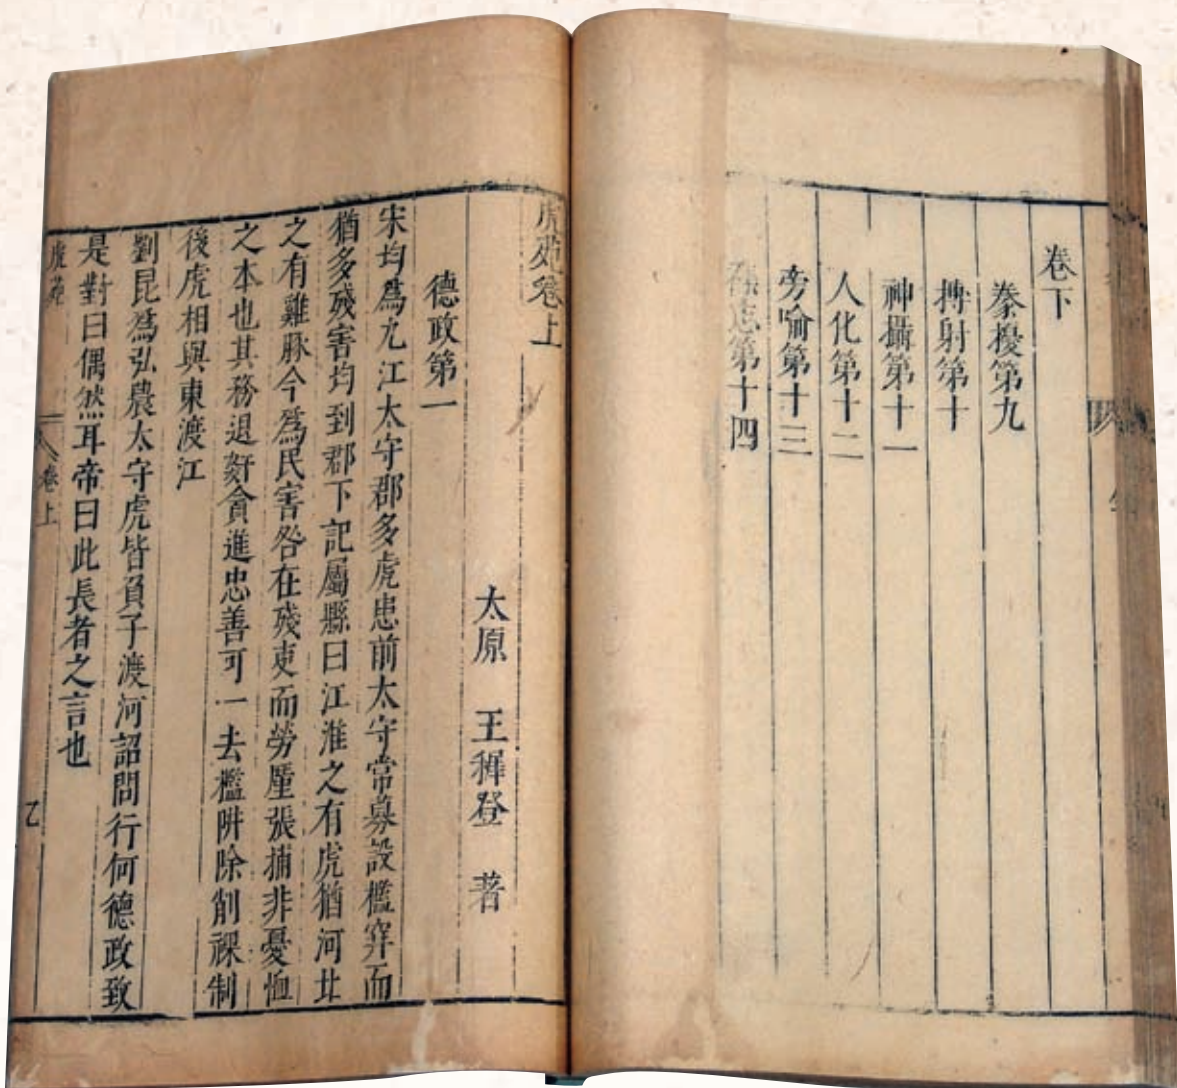 卷下
豢擾第九
搏射第十
神攝第十一
人化第十二
旁喻第十三
雜志第十四
虎苑卷上
太原 王穉登 著
德政第一
宋均爲九江太守郡多虎患前太守常募設檻穽而
猶多殘害均到郡下記屬縣曰江淮之有虎猶河北
之有雞豚今爲民害咎在殘吏而勞厪張捕非憂恤
之本也其務退姧貪進忠善可一去檻阱除削課制
後虎相與東渡江
劉昆爲弘農太守虎皆負子渡河詔問行何德政致
是對曰偶然耳帝曰此長者之言也
虎苑
卷上
乙